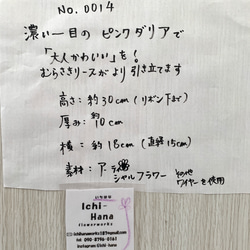 No. 0014
濃い一目の ピンクダリアで
「大人かわいい」を!
むらさきリースがより引き立てます
高さ:約30cm (リボン下まで)
厚み:約10cm
横:約18cm (直経15cm)
素材:アーティ
シャルフラワー
その他
ワイヤーを使用
いちはな
Ichi-
Hana
flowerworks
tel
090-8796-0161